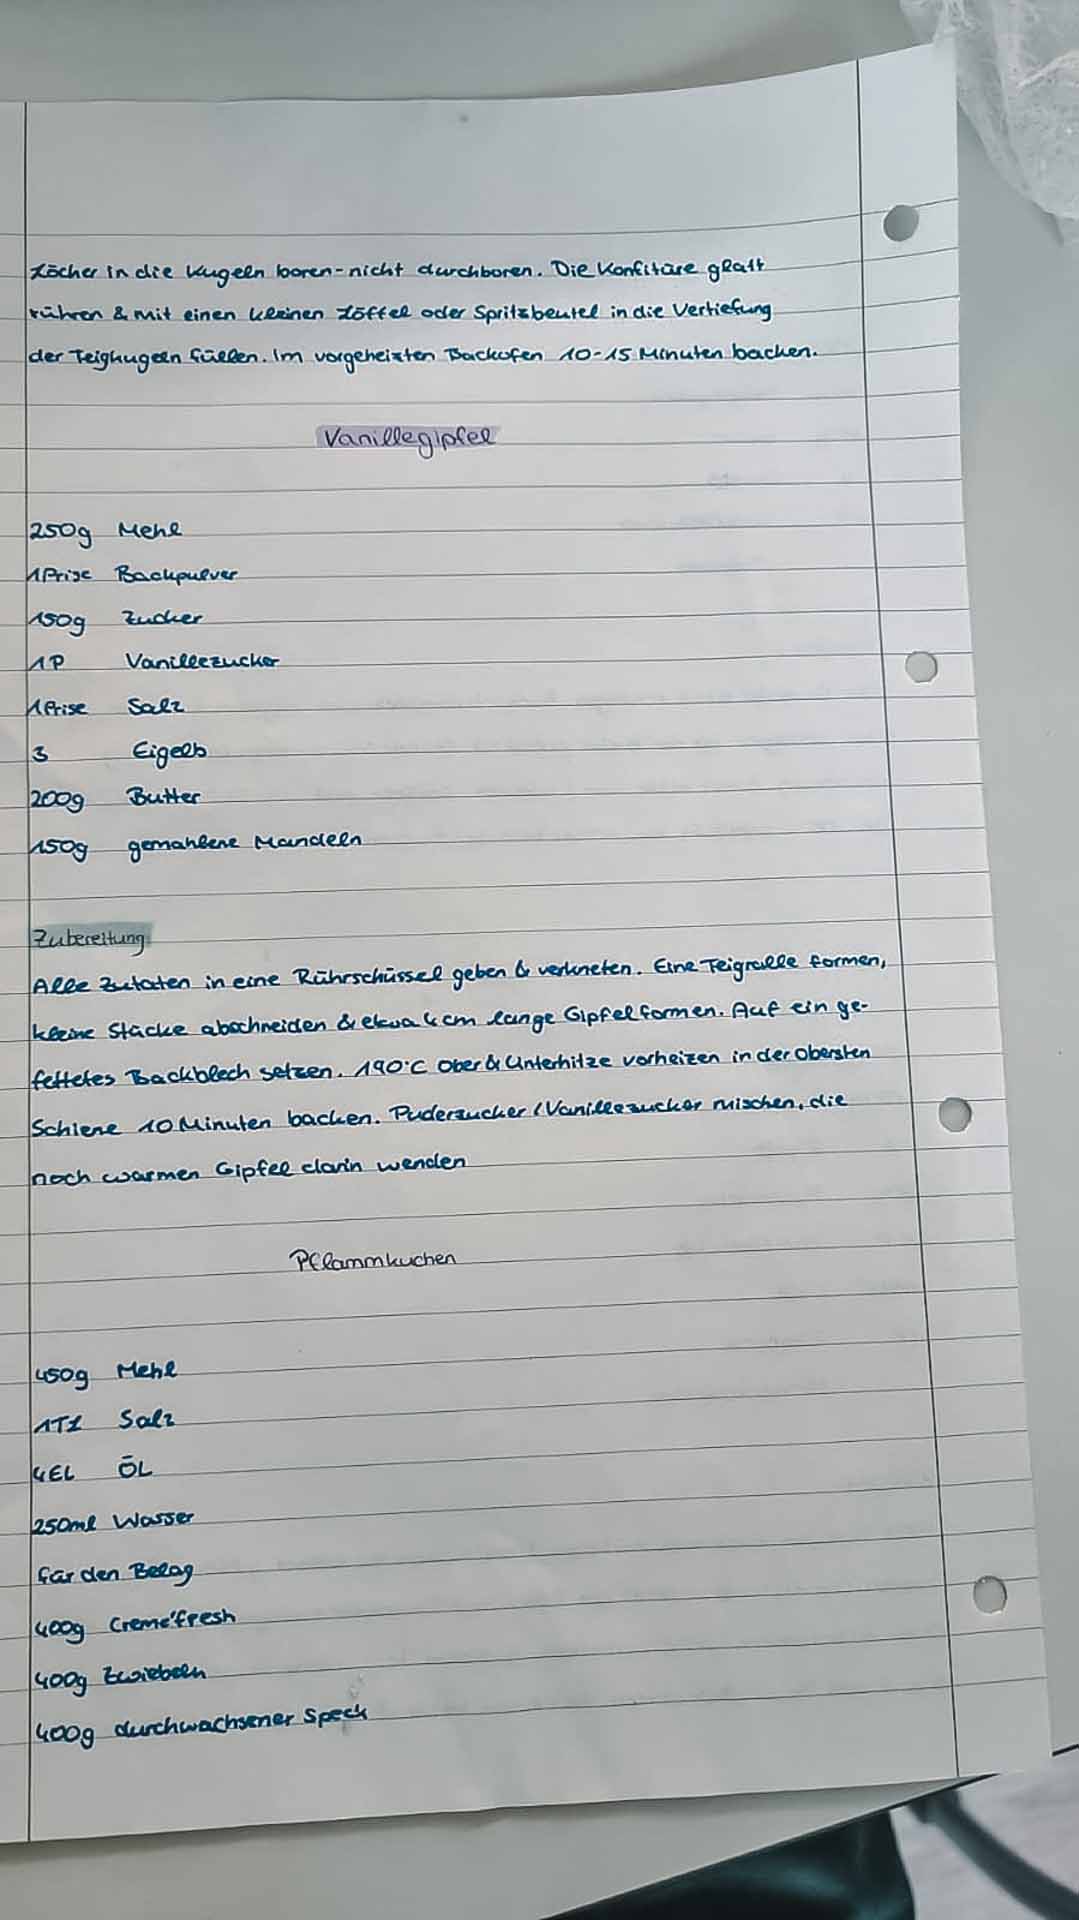 Löcher in die Kugeln boren-nicht durchboren. Die Konfitüre glatt
rühren & mit einen kleinen Löffel oder Spritzbeutel in die Vertiefung
der Teigkugeln füllen. Im vorgeheizten Backofen 10-15 Minuten backen.
Vanillegipfel
250g Mehl
1Prise Backpulver
150g Zucker
1P Vanillezucker
1Prise Salz
3 Eigelb
200g Butter
150g gemahlene Mandeln
Zubereitung
Alle Zutaten in eine Rührschüssel geben & verkneten. Eine Teigrolle formen,
kleine Stücke abschneiden & etwa 4cm lange Gipfel formen. Auf ein ge-
fettetes Backblech setzen. 190°C Ober & Unterhitze vorheizen in der obersten
Schiene 10 Minuten backen. Puderzucker/Vanillezucker mischen, die
noch warmen Gipfel darin wenden
Pflammkuchen
450g Mehl
1TL Salz
4EL ÖL
250ml Wasser
für den Belag
400g Creme'fresh
400g Zwiebeln
400g durchwachsener Speck